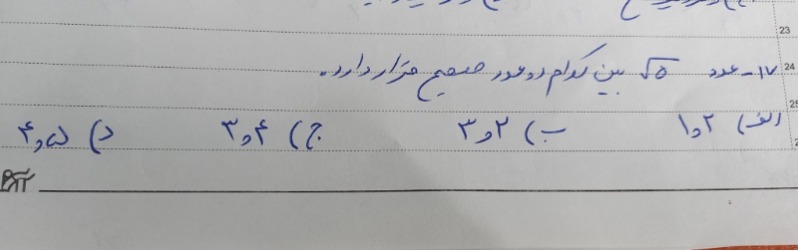 23
24
۱۷- عدد √۵ بین کدام دو عدد صحیح قرار دارد.
25
الف) ۲ و ۱ ب) ۲ و ۳ ج) ۴ و ۳ د) ۵ و ۴